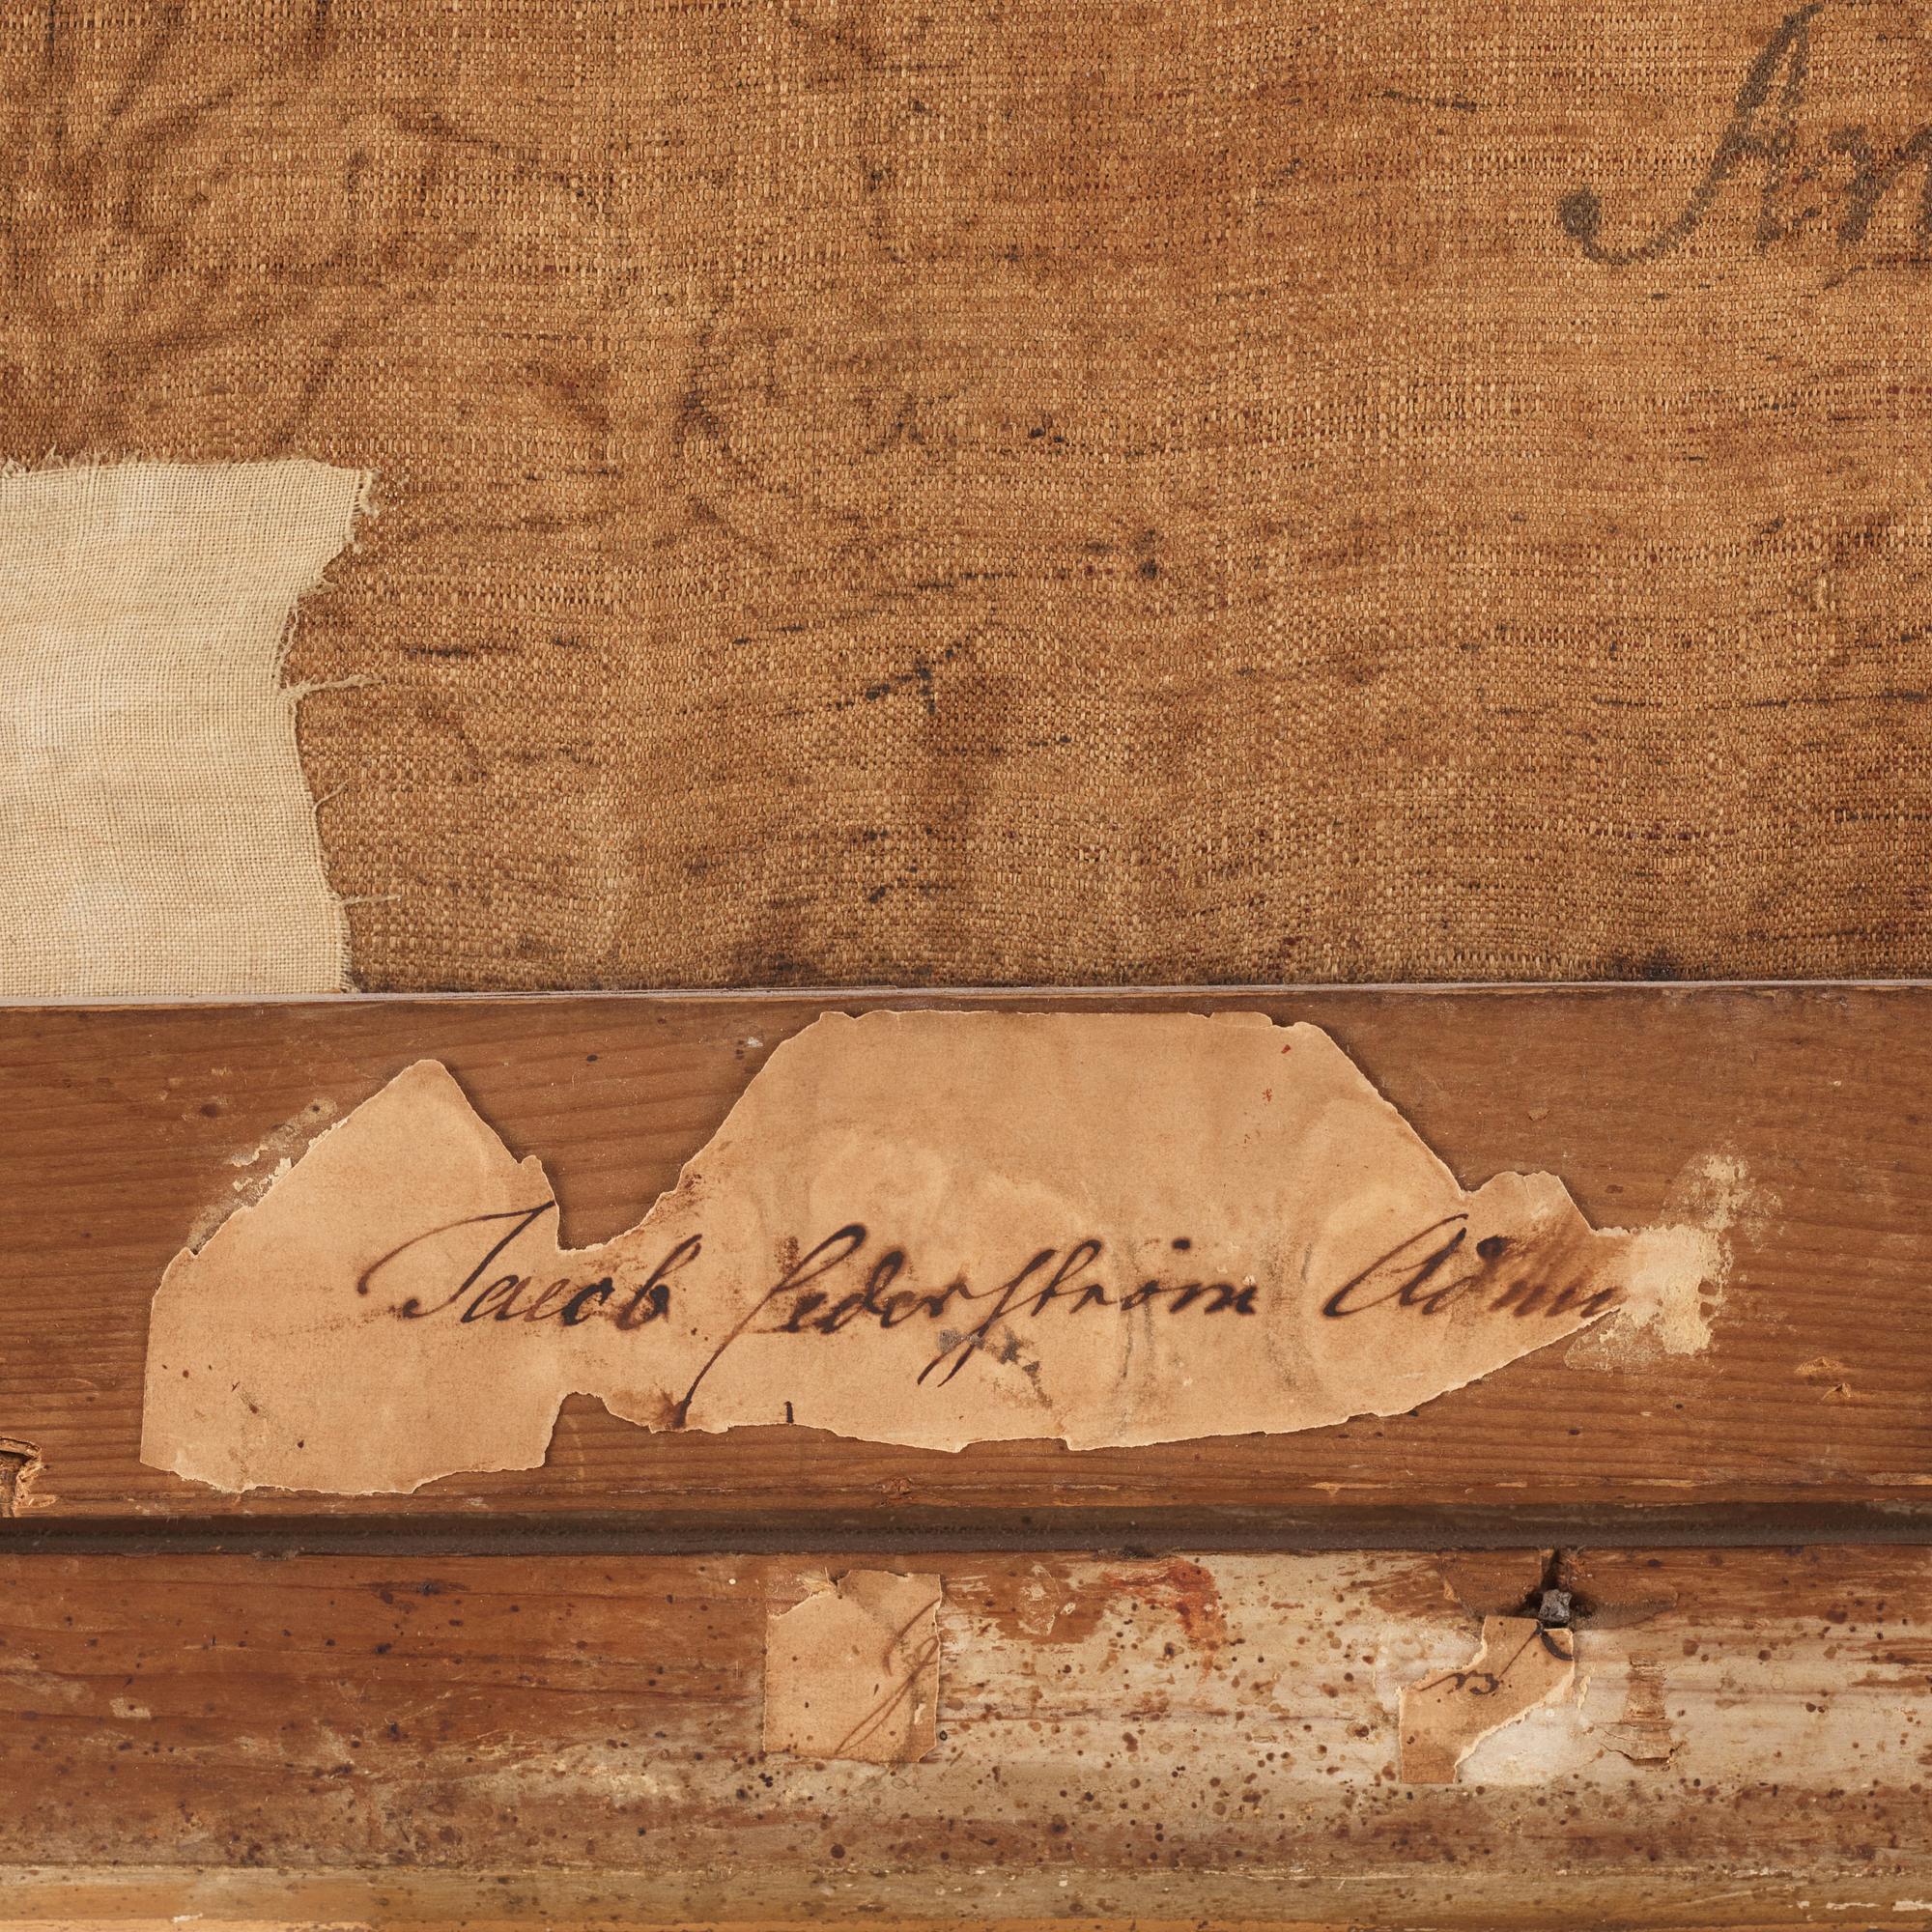 Arn
Jacob Federström Adm
rs